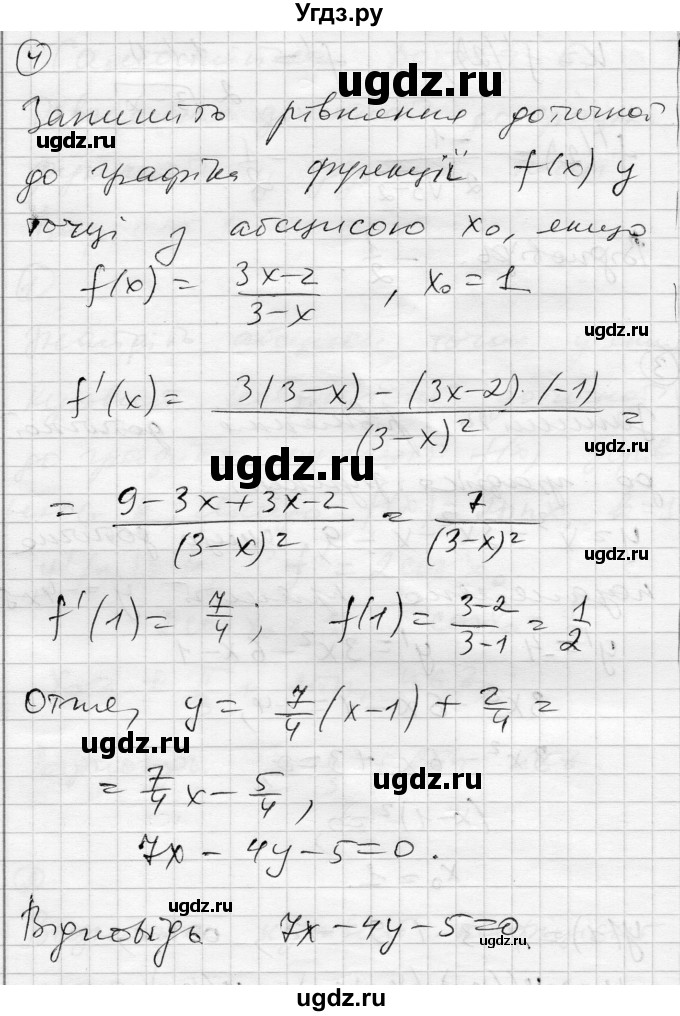 Угдз.ру
4
ugdz.ru
Запишіть рівняння дотичної
ugdz.ru
до графіка функції f(x) у
точці з абсцисою x₀, якщо
f(x) = (3x-2)/(3-x) , x₀ = 1
ugdz.ru
f'(x) = (3(3-x) - (3x-2)·(-1))/(3-x)² =
ugdz.ru
ugdz.ru
= (9-3x+3x-2)/(3-x)² = 7/(3-x)²
ugdz.ru
f'(1) = 7/4; f(1) = (3-2)/(3-1) = 1/2.
ugdz.ru
Отже, y = 7/4 (x-1) + 2/4 =
ugdz.ru
ugdz.ru
= 7/4 x - 5/4,
7x - 4y - 5 = 0.
ugdz.ru
Відповідь 7x - 4y - 5 = 0.
ugdz.ru
ugdz.ru